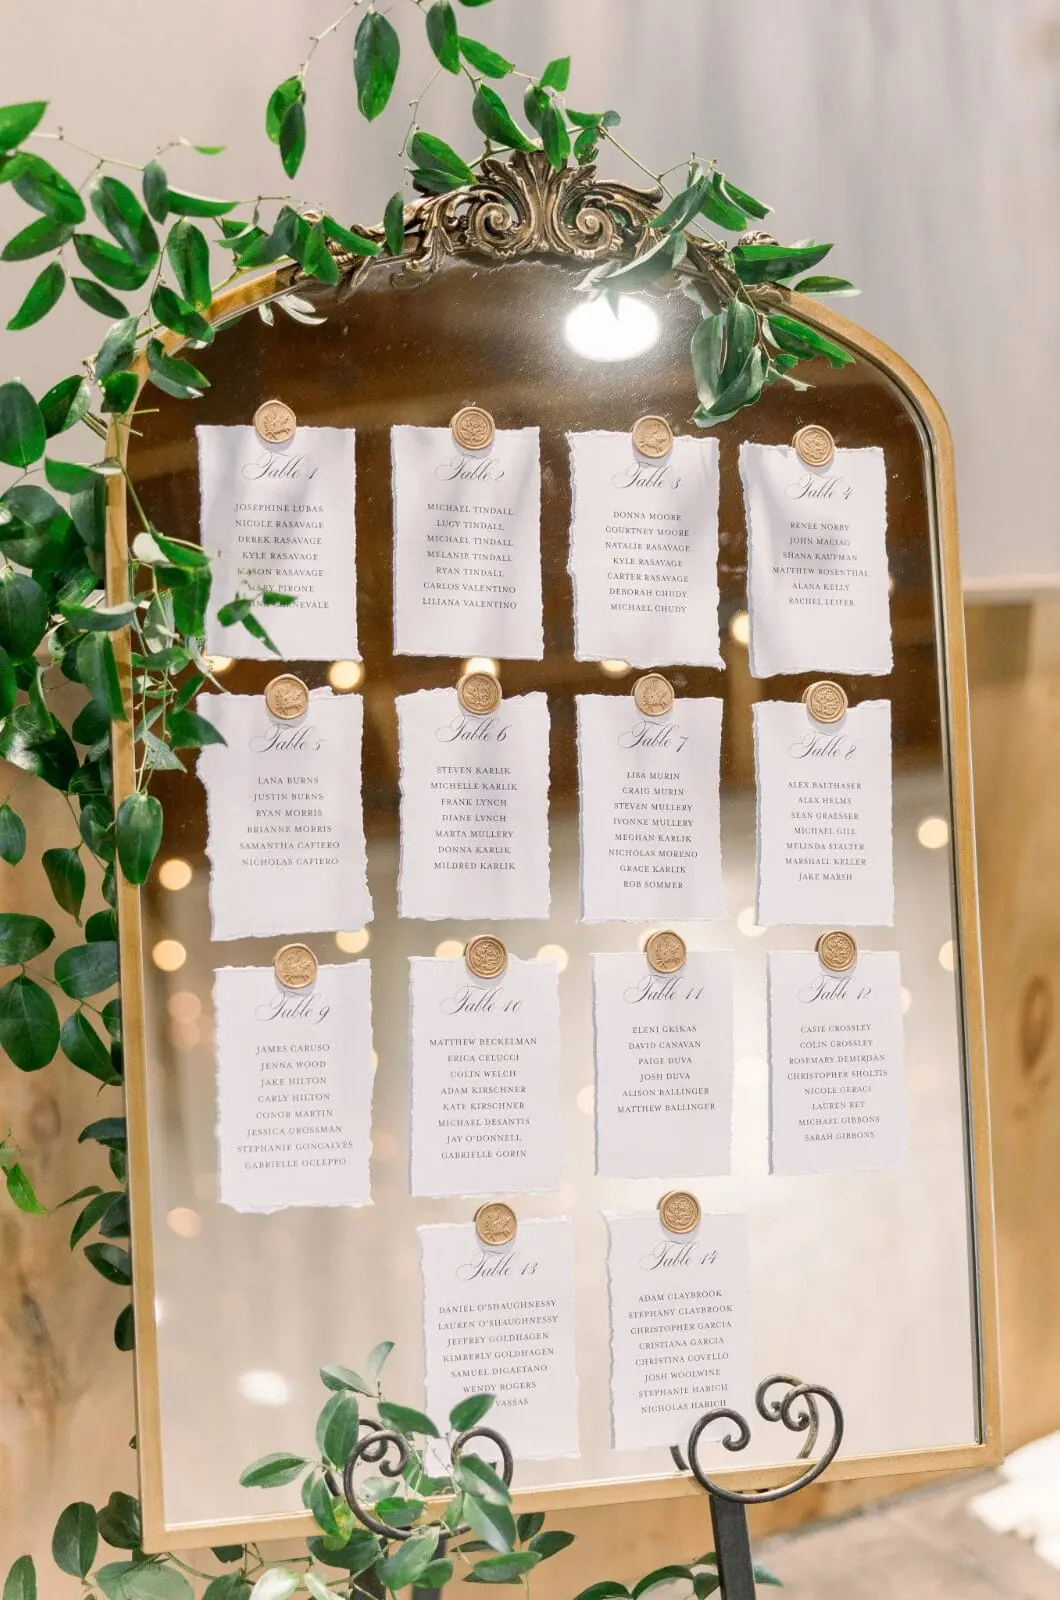 Table 1
JOSEPHINE LUBAS
NICOLE RASAVAGE
DEREK RASAVAGE
KYLE RASAVAGE
MASON RASAVAGE
MARY PIRONE
CARNEVALE
Table 2
MICHAEL TINDALL
LUCY TINDALL
MICHAEL TINDALL
MELANIE TINDALL
RYAN TINDALL
CARLOS VALENTINO
LILIANA VALENTINO
Table 3
DONNA MOORE
COURTNEY MOORE
NATALIE RASAVAGE
KYLE RASAVAGE
CARTER RASAVAGE
DEBORAH CHUDY
MICHAEL CHUDY
Table 4
RENEE NORBY
JOHN MACIAG
SHANA KAUFMAN
MATTHEW ROSENTHAL
ALANA KELLY
RACHEL LEIFER
Table 5
LANA BURNS
JUSTIN BURNS
RYAN MORRIS
BRIANNE MORRIS
SAMANTHA CAFIERO
NICHOLAS CAFIERO
Table 6
STEVEN KARLIK
MICHELLE KARLIK
FRANK LYNCH
DIANE LYNCH
MARTA MULLERY
DONNA KARLIK
MILDRED KARLIK
Table 7
LISA MURIN
CRAIG MURIN
STEVEN MULLERY
IVONNE MULLERY
MEGHAN KARLIK
NICHOLAS MORENO
GRACE KARLIK
ROB SOMMER
Table 8
ALEX BALTHASER
ALEX HELMS
SEAN GRAESSER
MICHAEL GILL
MELINDA STALTER
MARSHALL KELLER
JAKE MARSH
Table 9
JAMES CARUSO
JENNA WOOD
JAKE HILTON
CARLY HILTON
CONOR MARTIN
JESSICA GROSSMAN
STEPHANIE GONCALVES
GABRIELLE OCLEPPO
Table 10
MATTHEW BECKELMAN
ERICA CELUCCI
COLIN WELCH
ADAM KIRSCHNER
KATE KIRSCHNER
MICHAEL DESANTIS
JAY O'DONNELL
GABRIELLE GORIN
Table 11
ELENI GKIKAS
DAVID CANAVAN
PAIGE DUVA
JOSH DUVA
ALISON BALLINGER
MATTHEW BALLINGER
Table 12
CASIE CROSSLEY
COLIN CROSSLEY
ROSEMARY DEMIRJIAN
CHRISTOPHER SHOLTIS
NICOLE GERACI
LAUREN RET
MICHAEL GIBBONS
SARAH GIBBONS
Table 13
DANIEL O'SHAUGHNESSY
LAUREN O'SHAUGHNESSY
JEFFREY GOLDHAGEN
KIMBERLY GOLDHAGEN
SAMUEL DIGAETANO
WENDY ROGERS
VASSAS
Table 14
ADAM CLAYBROOK
STEPHANY CLAYBROOK
CHRISTOPHER GARCIA
CRISTIANA GARCIA
CHRISTINA COVELLO
JOSH WOOLWINE
STEPHANIE HABICH
NICHOLAS HABICH